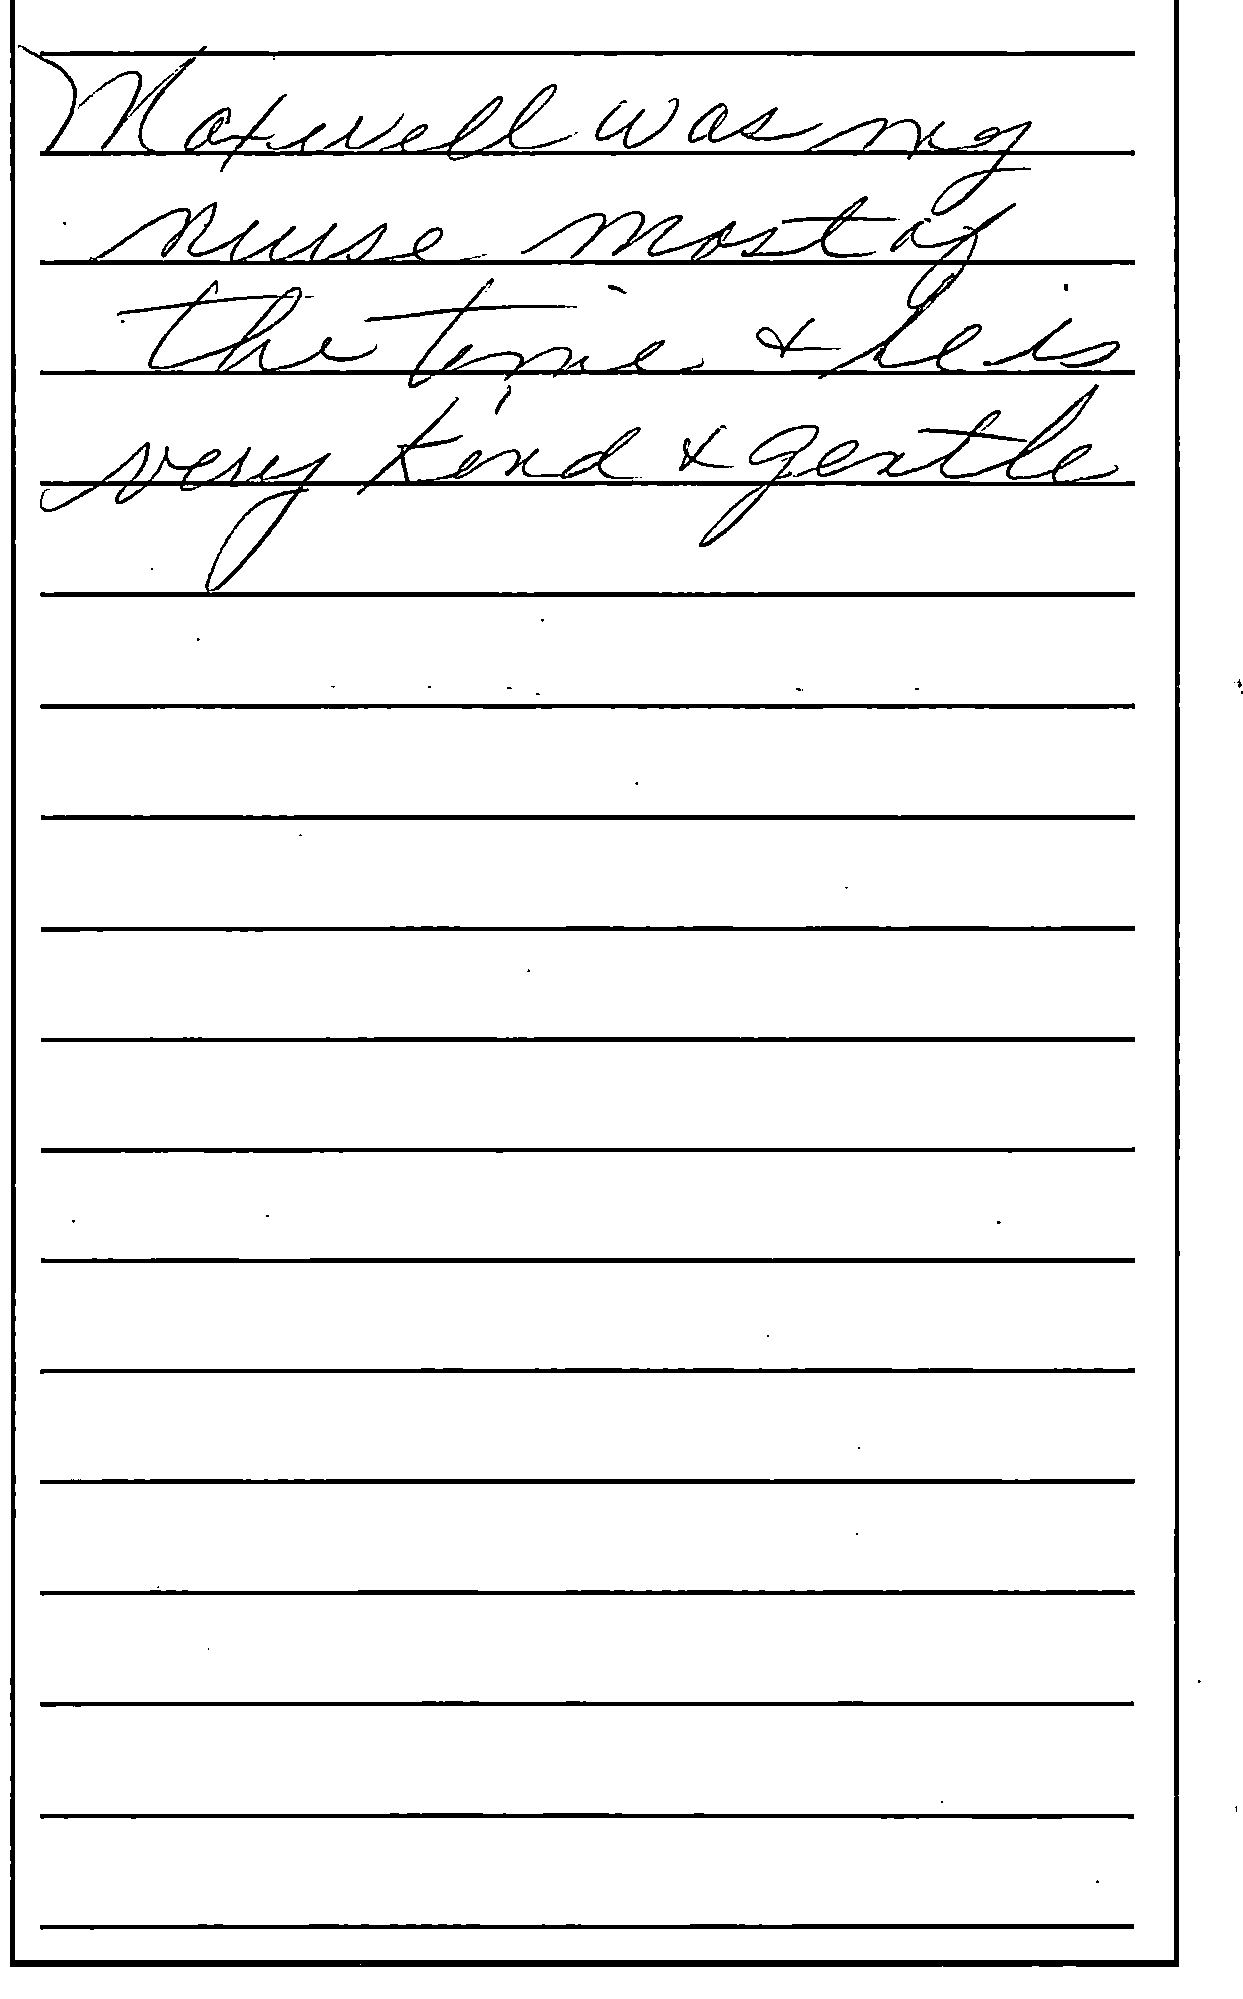 Maxwell was my
nurse most of
the time & he is
very kind & gentle